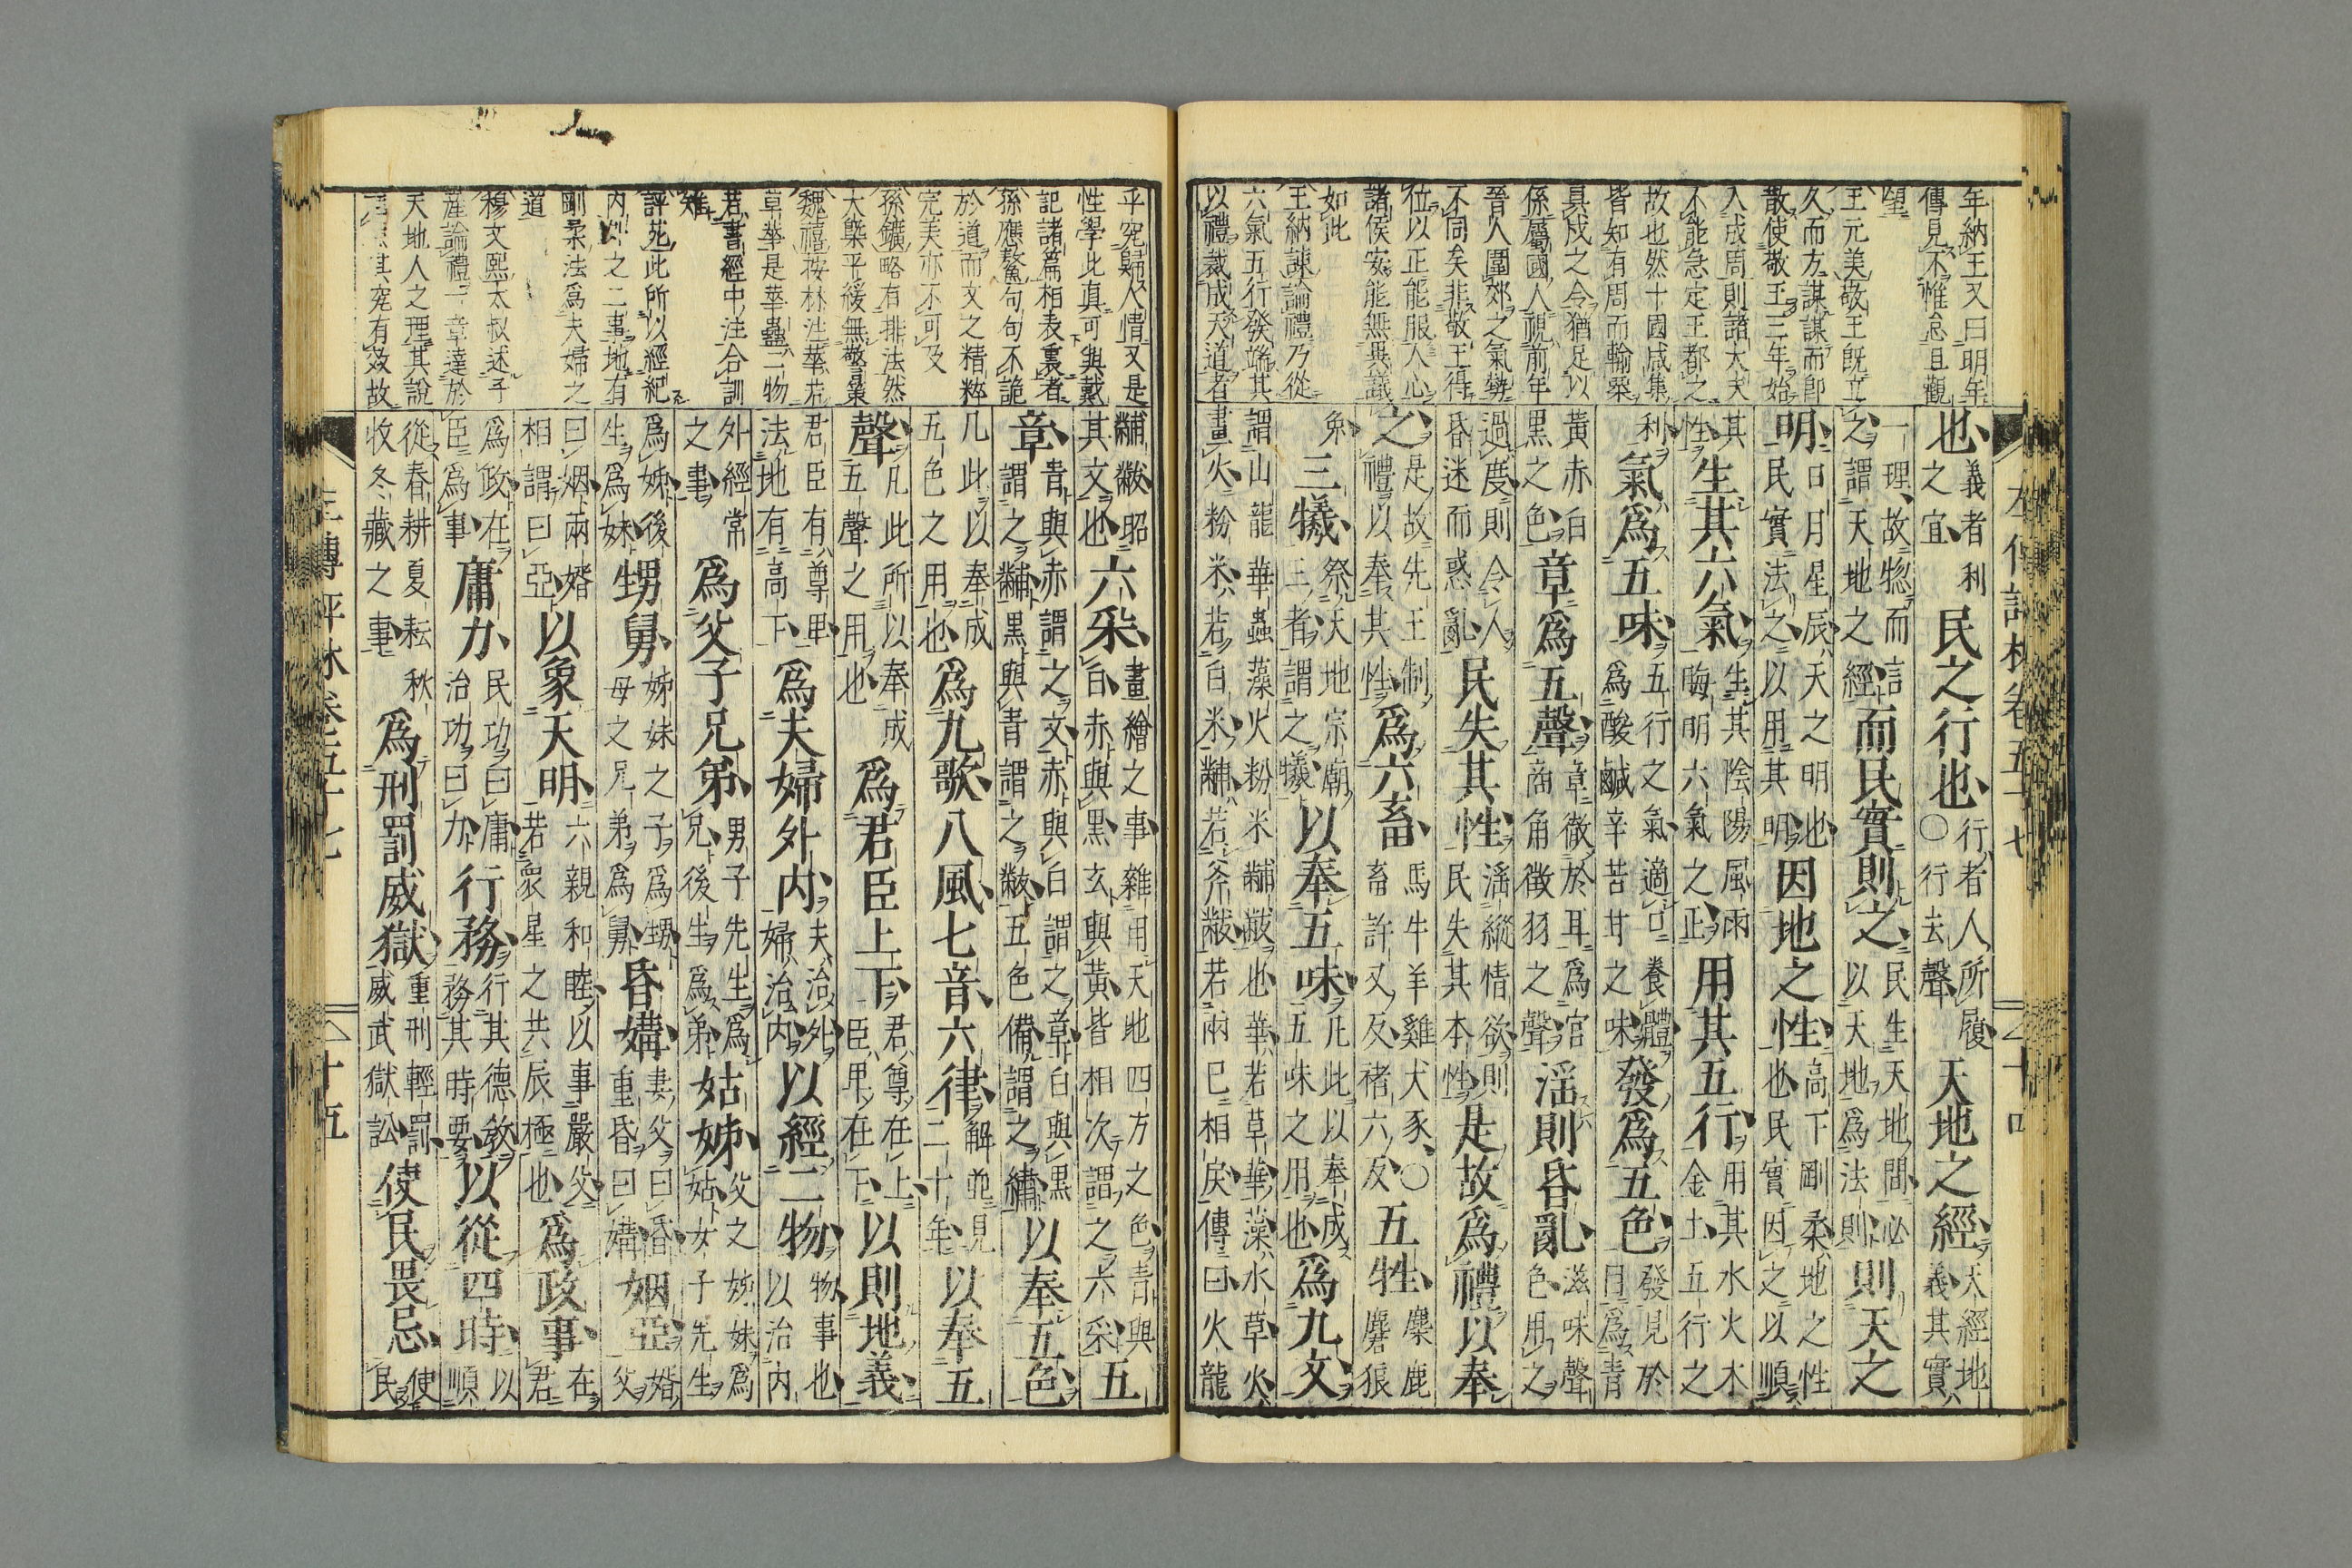 年納王又曰明年
傳見不惟怠且觀
望
王元美敬王既立
久而方謀謀而卽
散使敬王三年始
入成周則諸大夫
不能急定王都之
故也然十國咸集
皆知有周而輸粟
具戍之令猶足以
係屬國人視前年
晉人圍郊之氣勢
不同矣非敬王得
位以正能服人心
諸侯安能無異議
如此
王納諫論禮乃從
六氣五行發端其
以禮裁成天道者
也義者利之宜民之行也行者人所履○行去聲天地之經天經地義其實
一理故惣而言之謂天地之經而民實則之民生天地間必以天地爲法則則天之
明日月星辰天之明也民實法之以用其明因地之性高下剛柔地之性也民實因之以順
其性生其六氣生其陰陽風雨晦明六氣之正用其五行用其水火木金土五行之
利氣爲五味五行之氣適口養體爲酸鹹辛苦甘之味發爲五色發見於目爲青
黃赤白黑之色章爲五聲章徵於耳爲官商角徵羽之聲淫則昏亂滋味聲色用之
過度則令人昏迷而惑亂民失其性淫縱情欲則民失其本性是故爲禮以奉
之是故先王制禮以奉其性爲六畜馬牛羊雞犬豕○畜許又反褚六反五牲麋鹿麏狼
兔三犧祭天地宗廟三者謂之犧以奉五味凡此以奉成五味之用也爲九文
謂山龍華蟲藻火粉米黼黻也華若草華藻水草火畫火粉米若白米黼若斧黻若兩巳相戾傳曰火龍
左傳評林卷五十七 十四
乎究歸人情又是
性學此真可與戴
記諸篇相表裏者
孫應鰲句句不詭
於道而文之精粹
完美亦不可及
孫鑛略有排法然
大槩平緩無警策
魏禧按林注華若
草華是華蟲二物
若書經中注合訓
雉
評苑此所以經紀
內外之二事地有
剛柔法爲夫婦之
道
穆文熙太叔述子
產論禮一章達於
天地人之理其說
其究有效故
黼黻昭其文也六采畫繪之事雜用天地四方之色青與白赤與黑玄與黃皆相次謂之六采五
章青與赤謂之文赤與白謂之章白與黑謂之黼黑與青謂之黻五色備謂之繡以奉五色
凡此以奉成五色之用也爲九歌八風七音六律解並見二十年以奉五
聲凡此所以奉成五聲之用也爲君臣上下君尊在上臣卑在下以則地義
君臣有尊卑法地有高下爲夫婦外內夫治外婦治內以經二物物事也以治內
外經常之事爲父子兄弟男子先生爲兄後生爲弟姑姊父之姊妹爲姑女子先生
爲姊後生爲妹甥舅姊妹之子爲甥母之兄弟爲舅昏媾妻父曰昏重昏曰媾姻亞婿父
曰姻兩婿相謂曰亞以象天明六親和睦以事嚴父若衆星之共辰極也爲政事在君
爲政在臣爲事庸力民功曰庸治功曰力行務行其德教務其時要以從四時以順
從春耕夏耘秋收冬藏之事爲刑罰威獄重刑輕罰威武獄訟使民畏忌使民
左傳評林卷五十七 十五